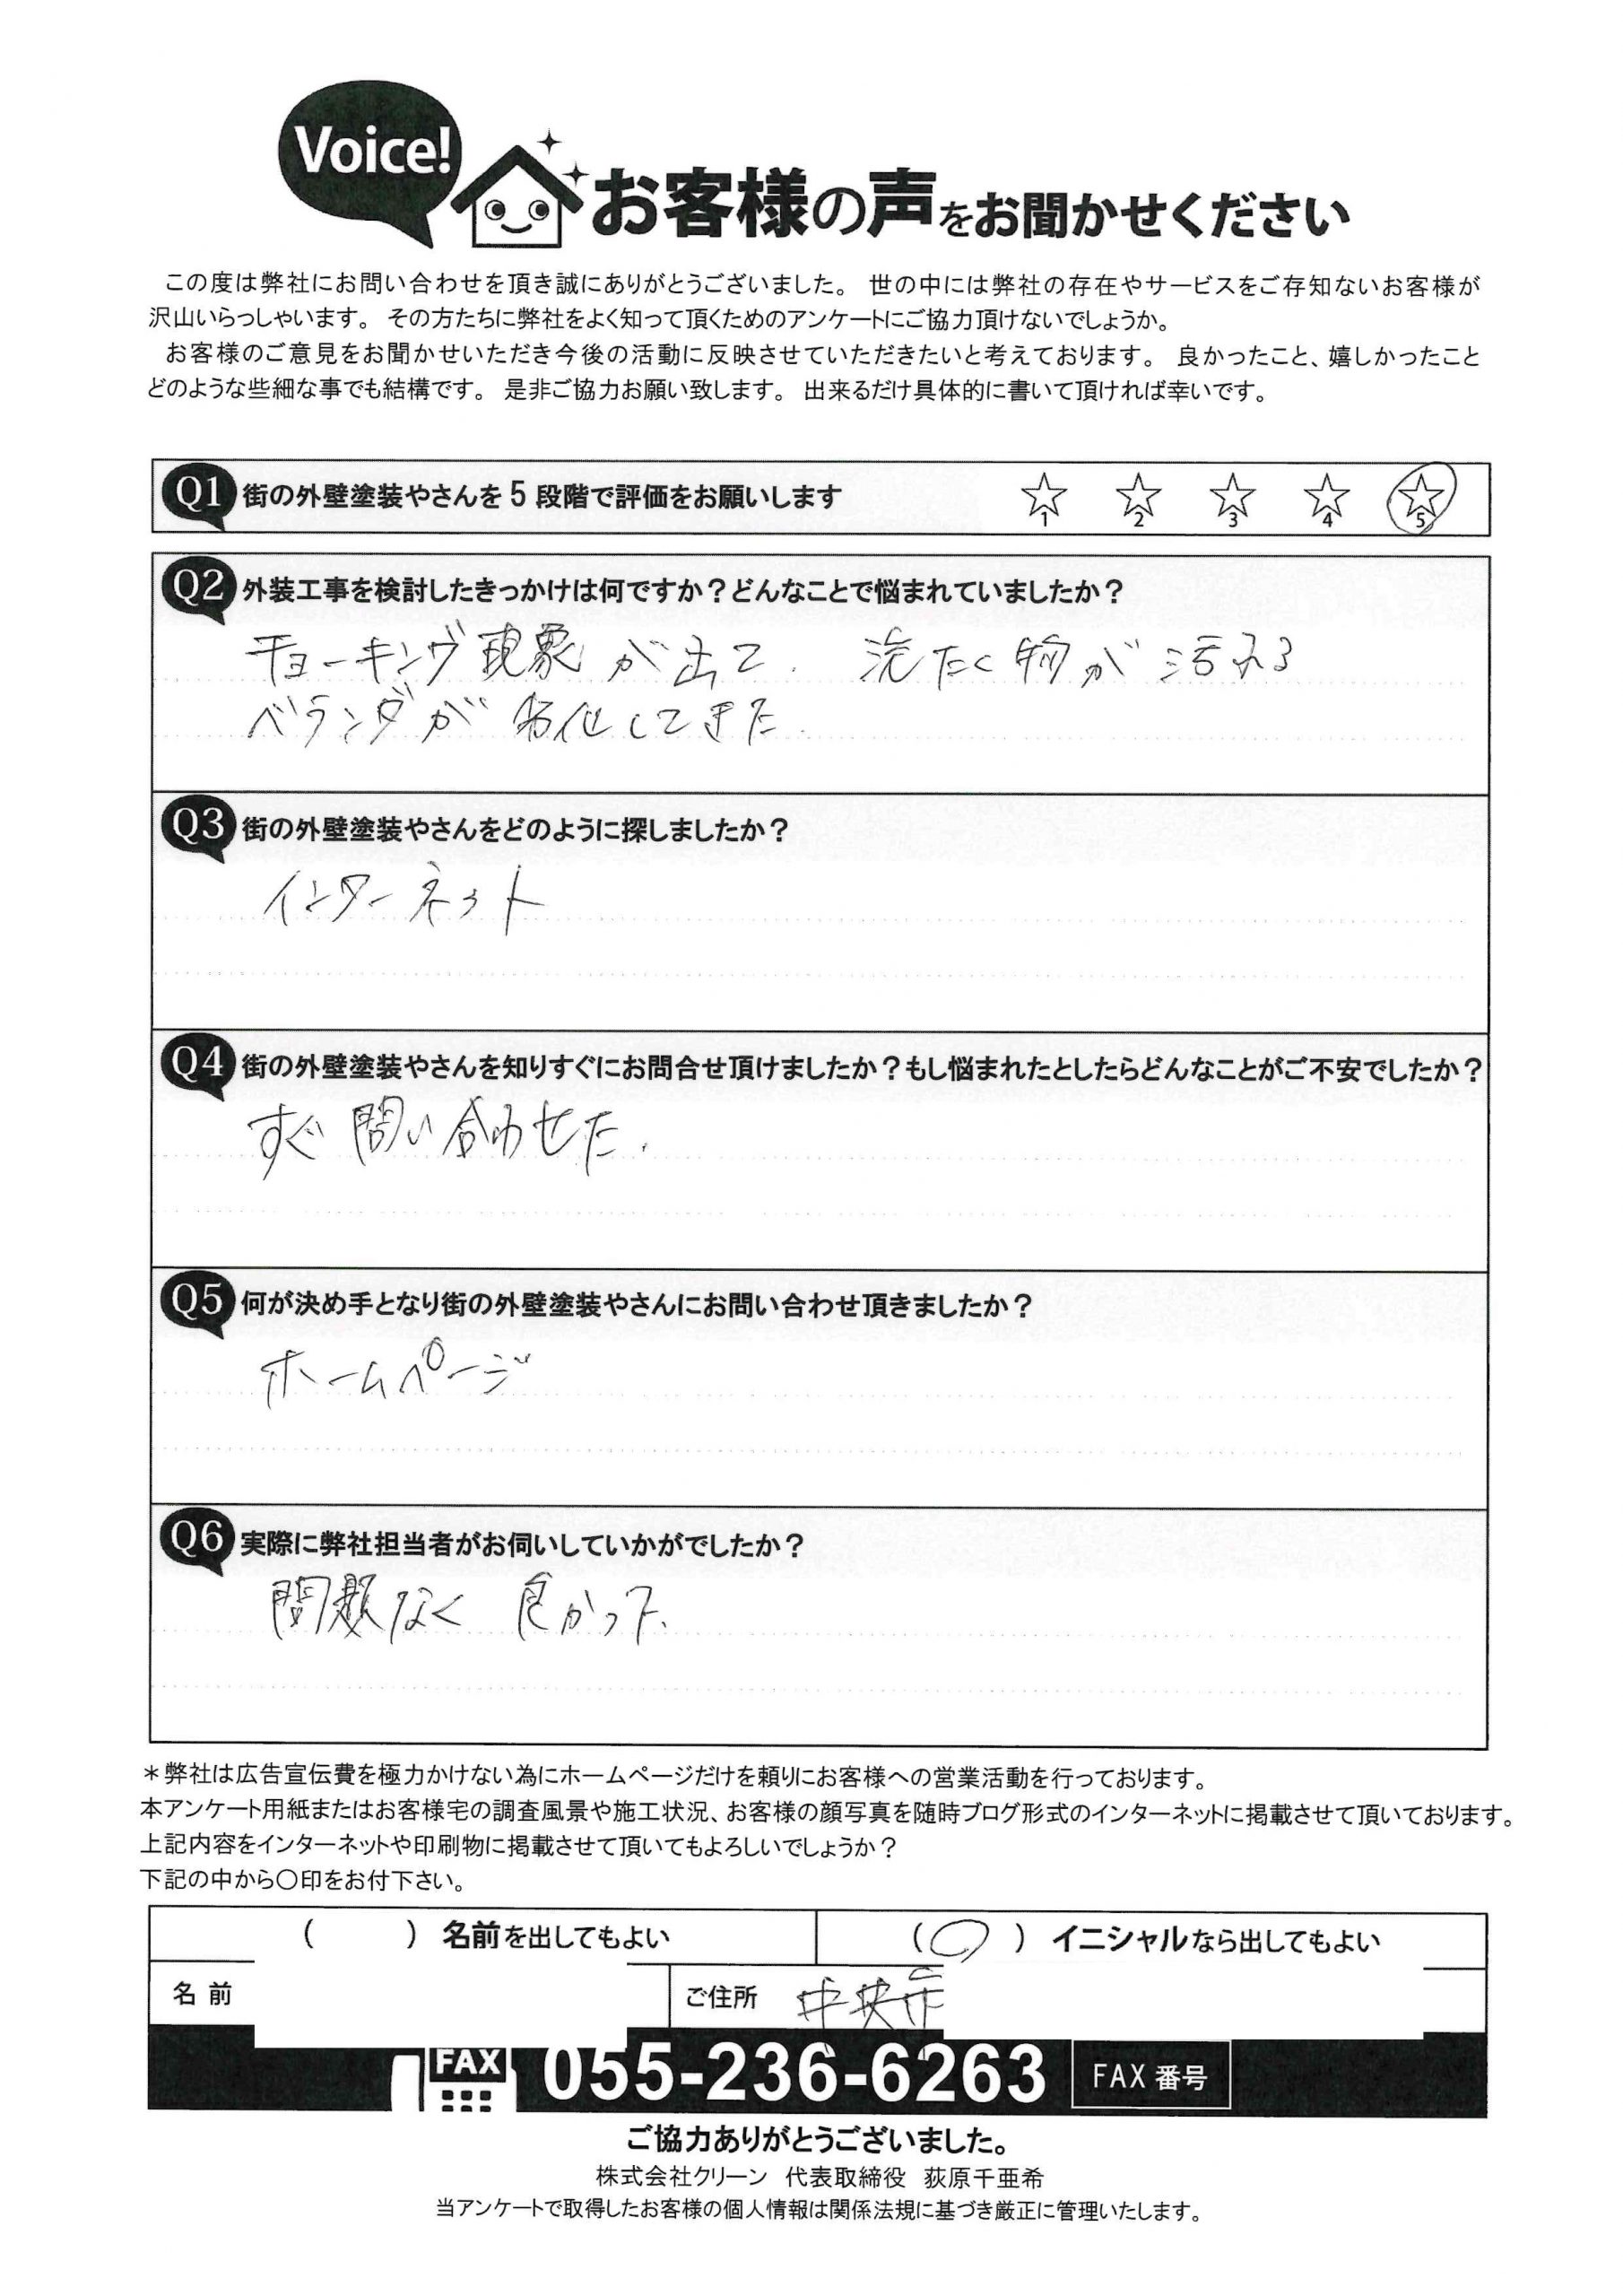 Voice!
お客様の声をお聞かせください
この度は弊社にお問い合わせを頂き誠にありがとうございました。 世の中には弊社の存在やサービスをご存知ないお客様が
沢山いらっしゃいます。 その方たちに弊社をよく知って頂くためのアンケートにご協力頂けないでしょうか。
お客様のご意見をお聞かせいただき今後の活動に反映させていただきたいと考えております。 良かったこと、嬉しかったこと
どのような些細な事でも結構です。 是非ご協力お願い致します。 出来るだけ具体的に書いて頂ければ幸いです。
Q1 街の外壁塗装やさんを5段階で評価をお願いします ☆1 ☆2 ☆3 ☆4 ☆5
Q2 外装工事を検討したきっかけは何ですか？どんなことで悩まれていましたか？
チョーキング現象が出て. 洗たく物が汚れる
ベランダが劣化してきた.
Q3 街の外壁塗装やさんをどのように探しましたか？
インターネット
Q4 街の外壁塗装やさんを知りすぐにお問合せ頂けましたか？もし悩まれたとしたらどんなことがご不安でしたか？
すぐ問い合わせた.
Q5 何が決め手となり街の外壁塗装やさんにお問い合わせ頂きましたか？
ホームページ
Q6 実際に弊社担当者がお伺いしていかがでしたか？
問題なく 良かった.
＊弊社は広告宣伝費を極力かけない為にホームページだけを頼りにお客様への営業活動を行っております。
本アンケート用紙またはお客様宅の調査風景や施工状況、お客様の顔写真を随時ブログ形式のインターネットに掲載させて頂いております。
上記内容をインターネットや印刷物に掲載させて頂いてもよろしいでしょうか？
下記の中から〇印をお付下さい。
( ) 名前を出してもよい (〇) イニシャルなら出してもよい
名前 ご住所 中央市
FAX 055-236-6263 FAX番号
ご協力ありがとうございました。
株式会社クリーン 代表取締役 荻原千亜希
当アンケートで取得したお客様の個人情報は関係法規に基づき厳正に管理いたします。